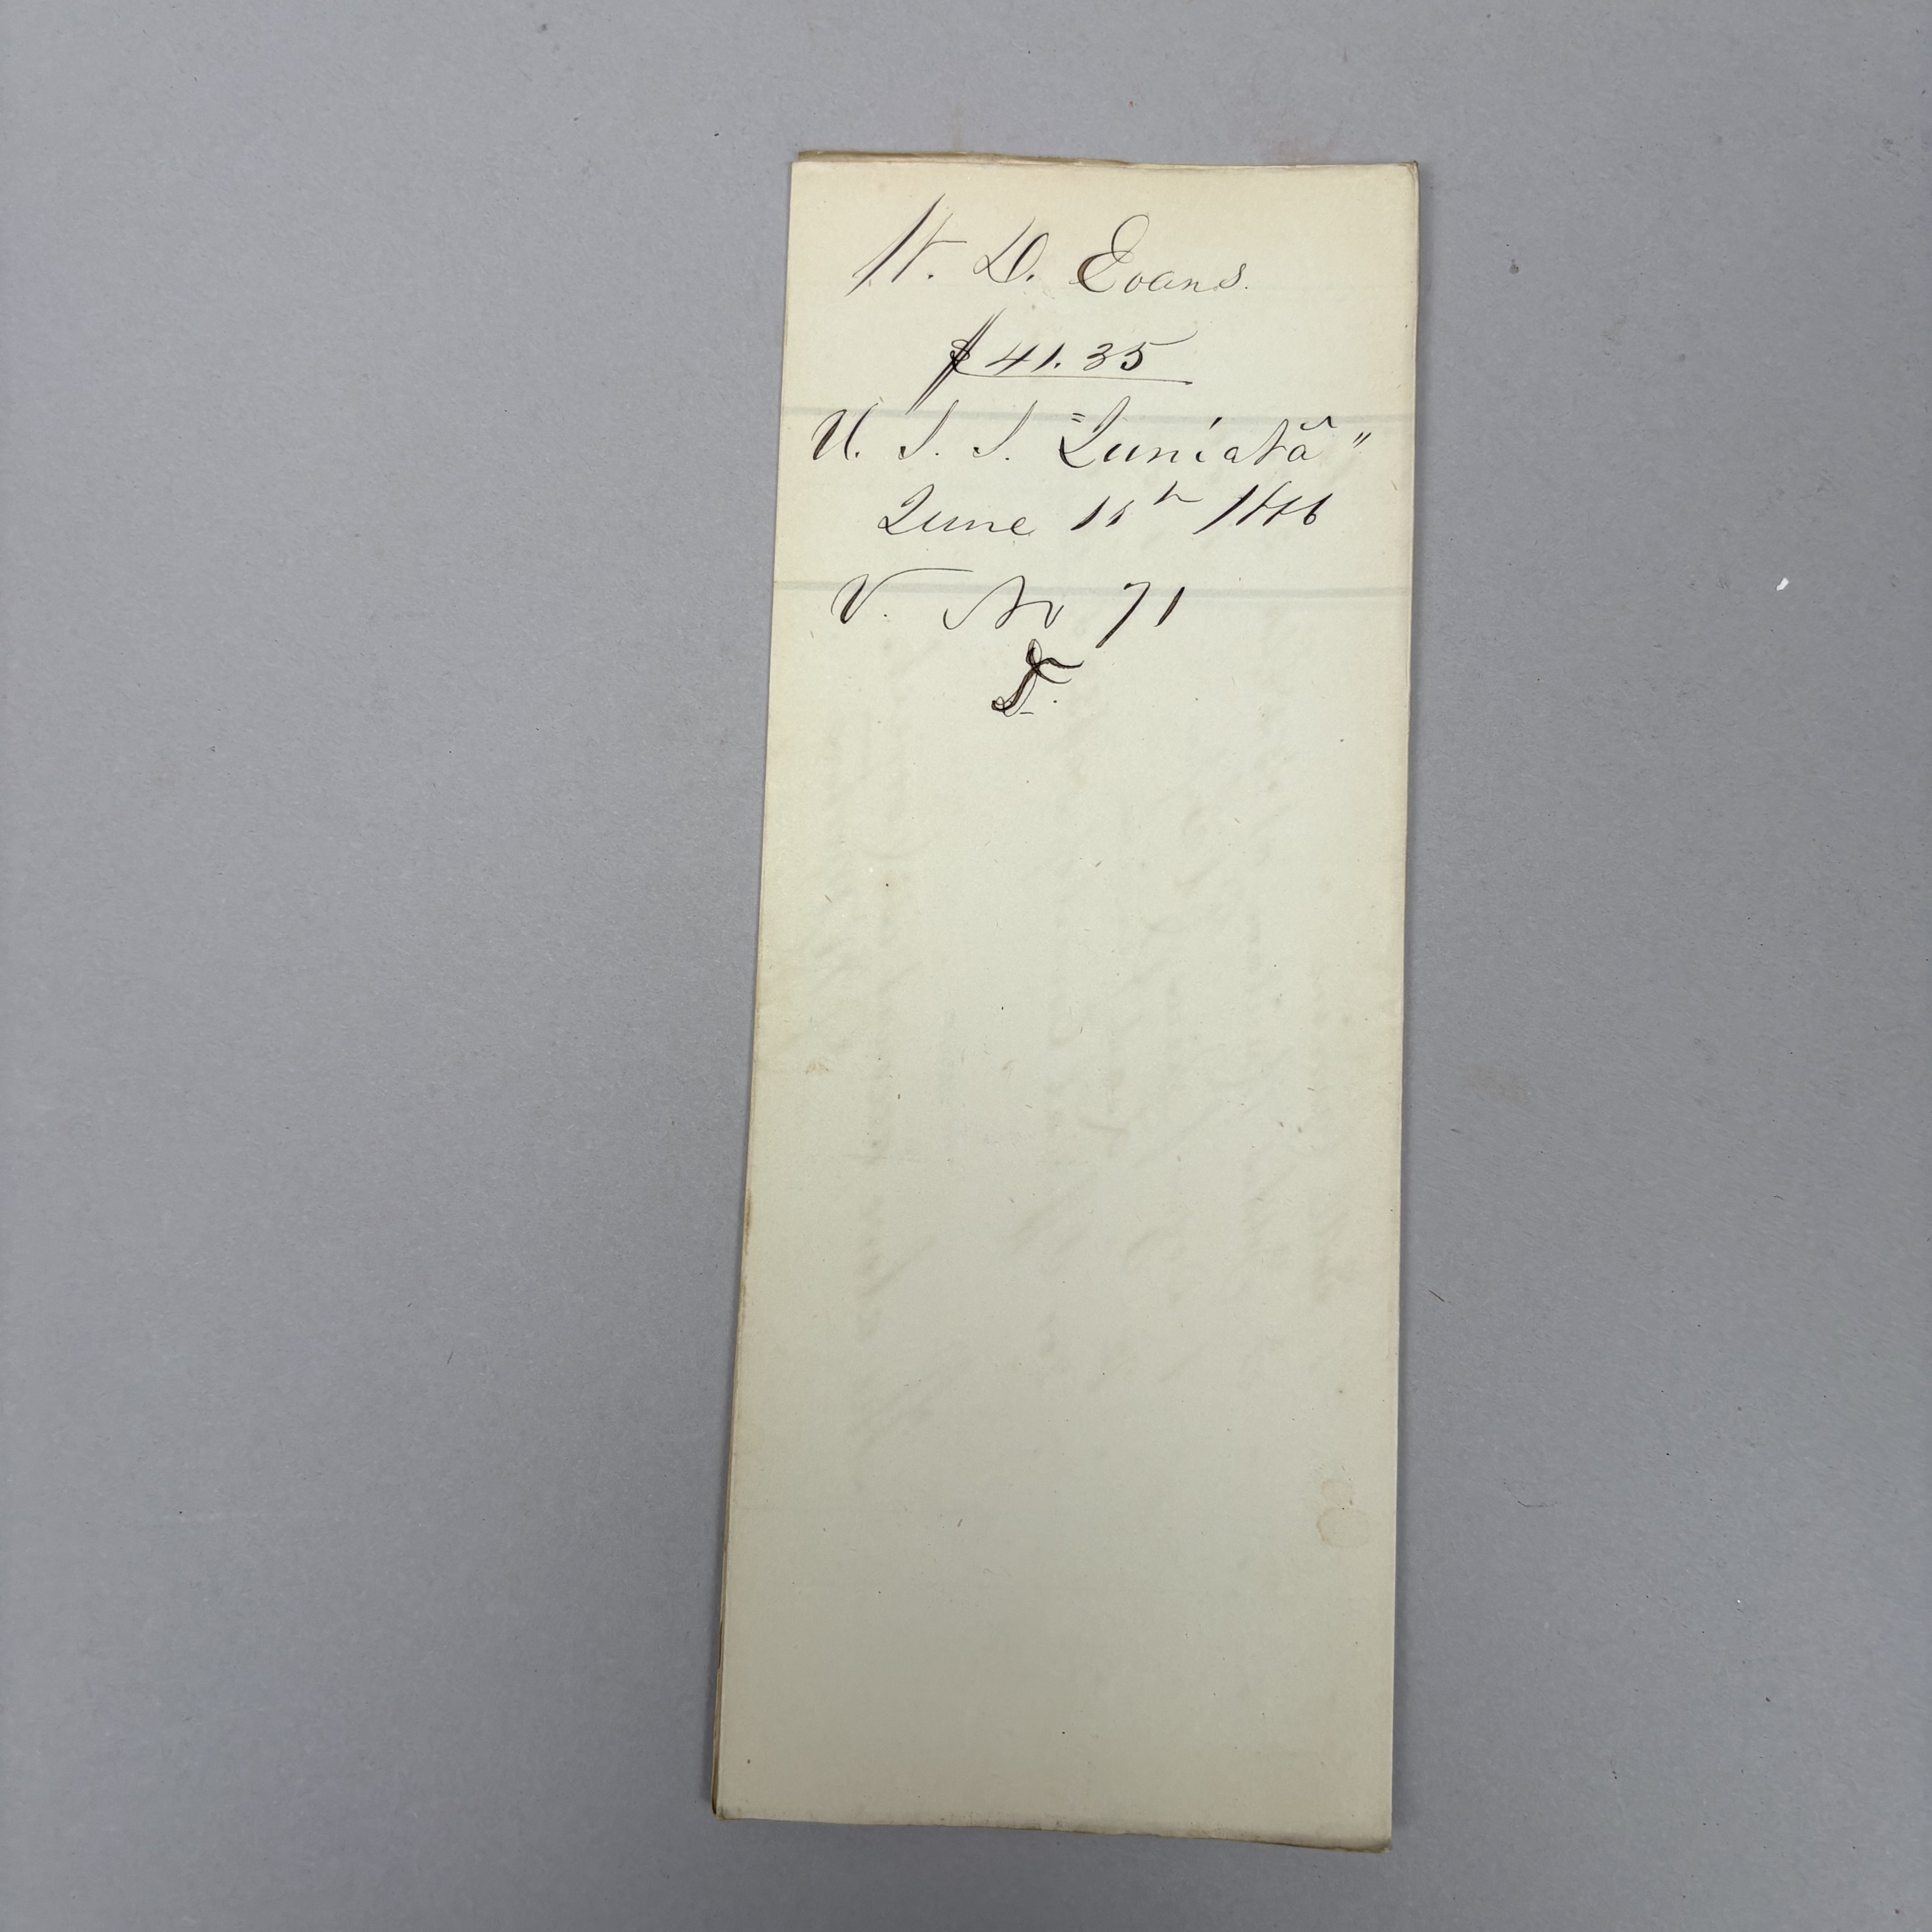 H. D. Evans.
$41.35
U. S. S. "Juniata"
June 15th 1886
V. No 71
D.